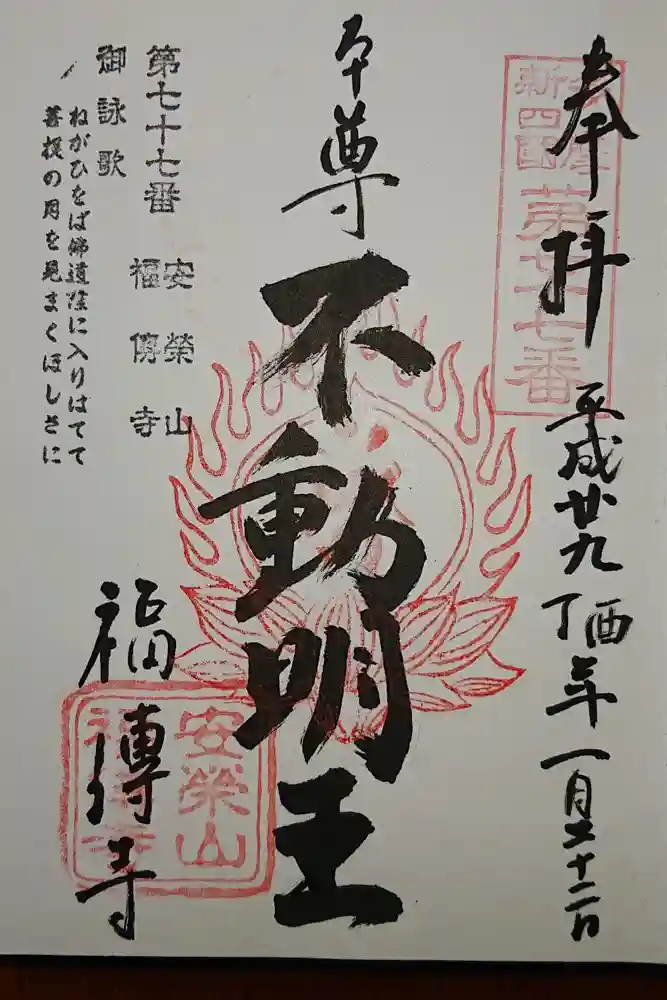 奉拝
新四國
第七十七番
平成廿九丁酉年一月二十二日
本尊
不動明王
第七十七番
安榮山
福傳寺
御詠歌
ねがひをば佛道に入りはてて
菩提の月を見まくほしさに
福傳寺
安榮山